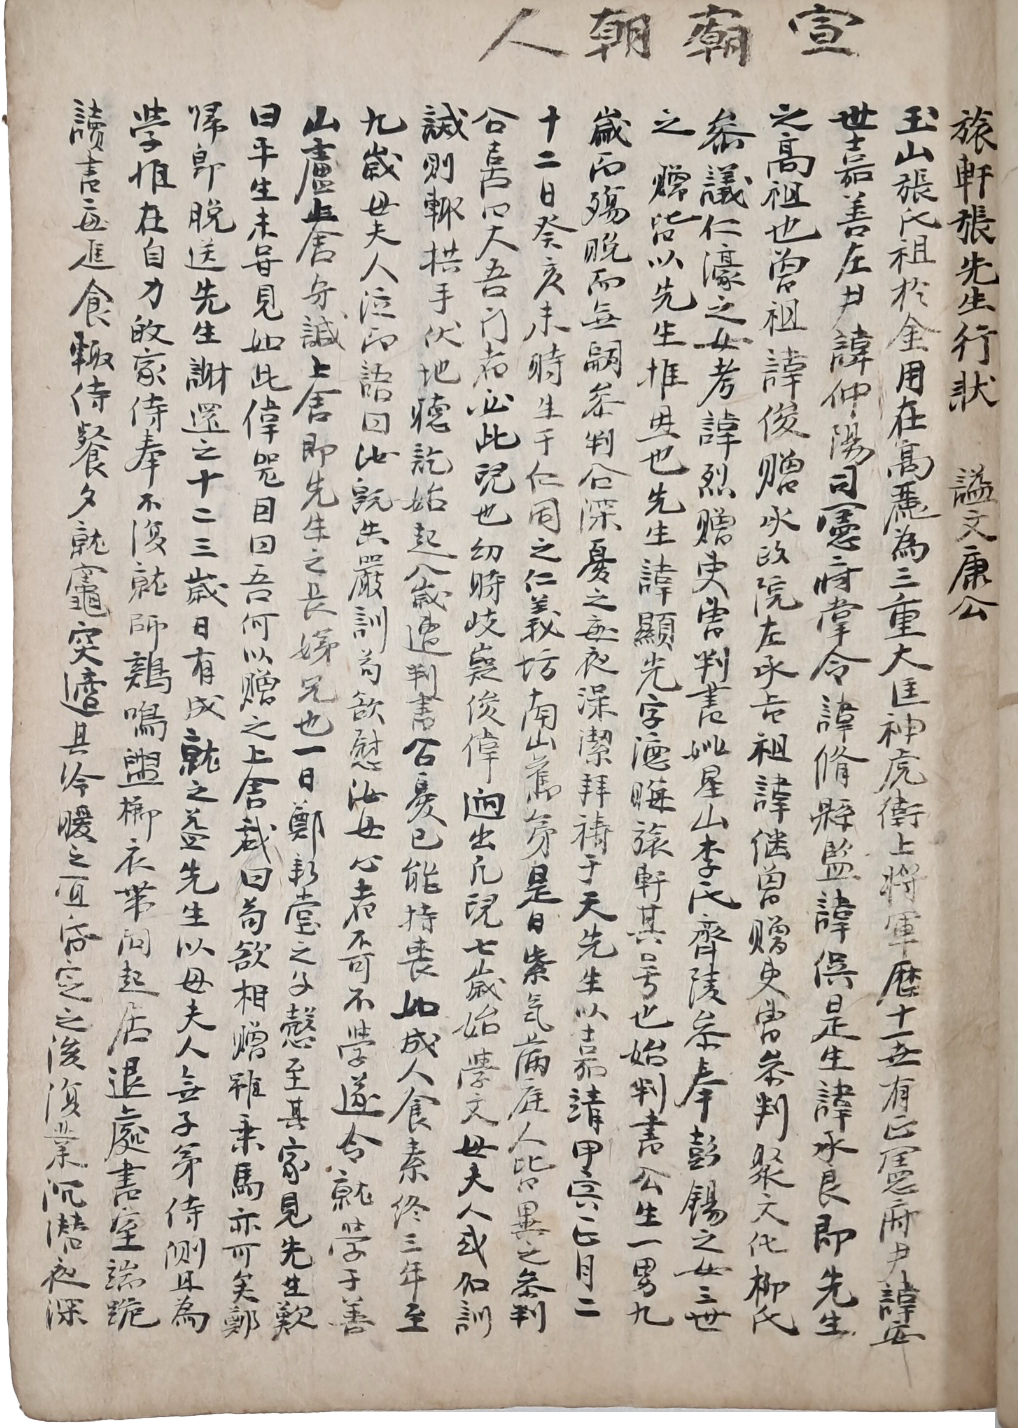 宣廟朝人
旅軒張先生行狀 謚文康公
玉山張氏祖於金用在高麗為三重大匡神虎衛上將軍歷十一世有正憲府尹諱安
世嘉善左尹諱仲陽司憲府掌令諱脩縣監諱俁是生諱承良即先生
之高祖也曾祖諱俊贈承政院左承旨祖諱継曾贈吏曹參判聚文化柳氏
參議仁濠之女考諱烈贈吏曹判書妣星山李氏齊陵參奉彭錫之女三世
之贈皆以先生推恩也先生諱顯光字德晦旅軒其号也始判書公生一男九
歲而殤晚而無嗣參判公深憂之每夜澡潔拜禱于天先生以嘉靖甲寅正月二
十二日癸亥未時生于仁同之仁義坊南山舊第是日紫氣滿庭人皆異之參判
公喜曰大吾門者必此兒也幼時岐嶷俊偉逈出凡兒七歲始學文母夫人或加訓
誡則輒拱手伏地聴訖始起八歲遭判書公憂已能持喪如成人食素終三年至
九歲母夫人泣而語曰汝旣失嚴訓苟欲慰汝母心者不可不學遂令就學于善
山盧上舍守諴上舍即先生之長姊兄也一日鄭新堂之子慤至其家見先生歎
曰平生未甞見如此偉児目曰吾何以贈之上舍戱曰苟欲相贈雖乗馬亦可矣鄭
歸即脫送先生謝還之十二三歲日有成就之益先生以母夫人無子弟侍側且為
學惟在自力故家侍奉不復就師鷄鳴盥櫛衣帶問起居退處書室端跪
讀書每進食輒侍餐夕就竈突適其冷暖之宜昏定之後復業沉潜夜深